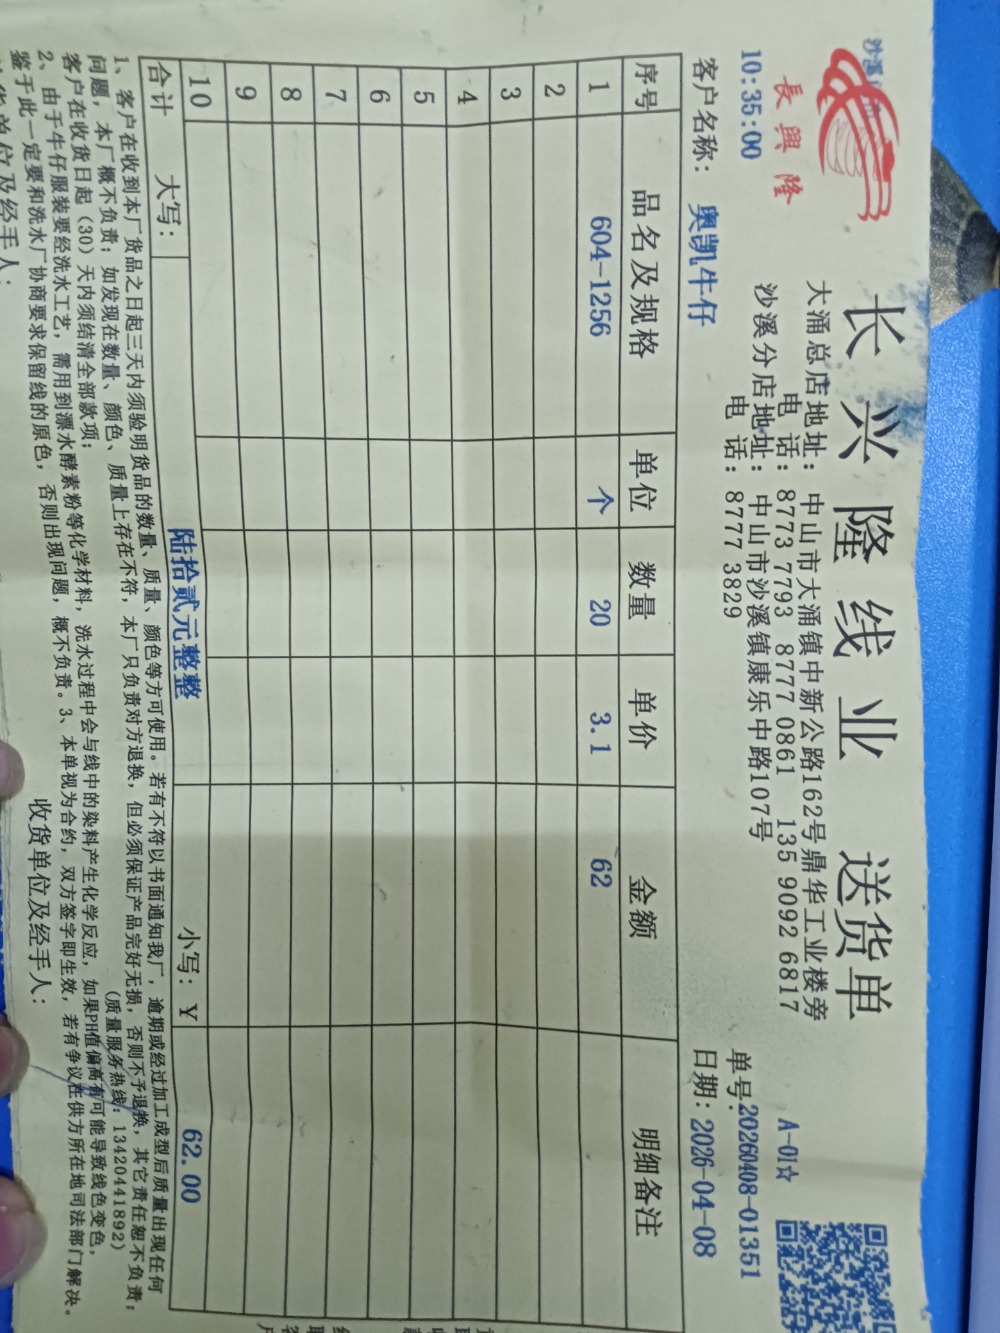 長興隆
长兴隆线业 送货单
大涌总店地址：中山市大涌镇中新公路162号鼎华工业楼旁
电 话：8773 7793 8777 0861 135 9092 6817
沙溪分店地址：中山市沙溪镇康乐中路107号
电 话：8777 3829
A-01☆
10:35:00
单号：20260408-01351
客户名称：奥凯牛仔
日期：2026-04-08
序号 品名及规格 单位 数量 单价 金额 明细备注
1 604-1256 个 20 3.1 62
2
3
4
5
6
7
8
9
10
合计 大写： 陆拾贰元整整 小写：¥ 62.00
1、客户在收到本厂货品之日起三天内须验明货品的数量、质量、颜色等方可使用。若有不符以书面通知我厂，逾期或经过加工成型后质量出现任何
问题，本厂概不负责；如发现在数量、颜色、质量上存在不符，本厂只负责对方退换，但必须保证产品完好无损，否则不予退换，其它责任恕不负责；
客户在收货日起（30）天内须结清全部款项；
（质量服务热线：13420441892）
2、由于牛仔服装要经洗水工艺，需用到漂水酵素粉等化学材料，洗水过程中会与线中的染料产生化学反应，如果PH值偏高有可能导致线色变色，
鉴于此一定要和洗水厂协商要求保留线的原色，否则出现问题，概不负责。3、本单视为合约，双方签字即生效，若有争议在供方所在地司法部门解决。
货单位及经手人：
收货单位及经手人：